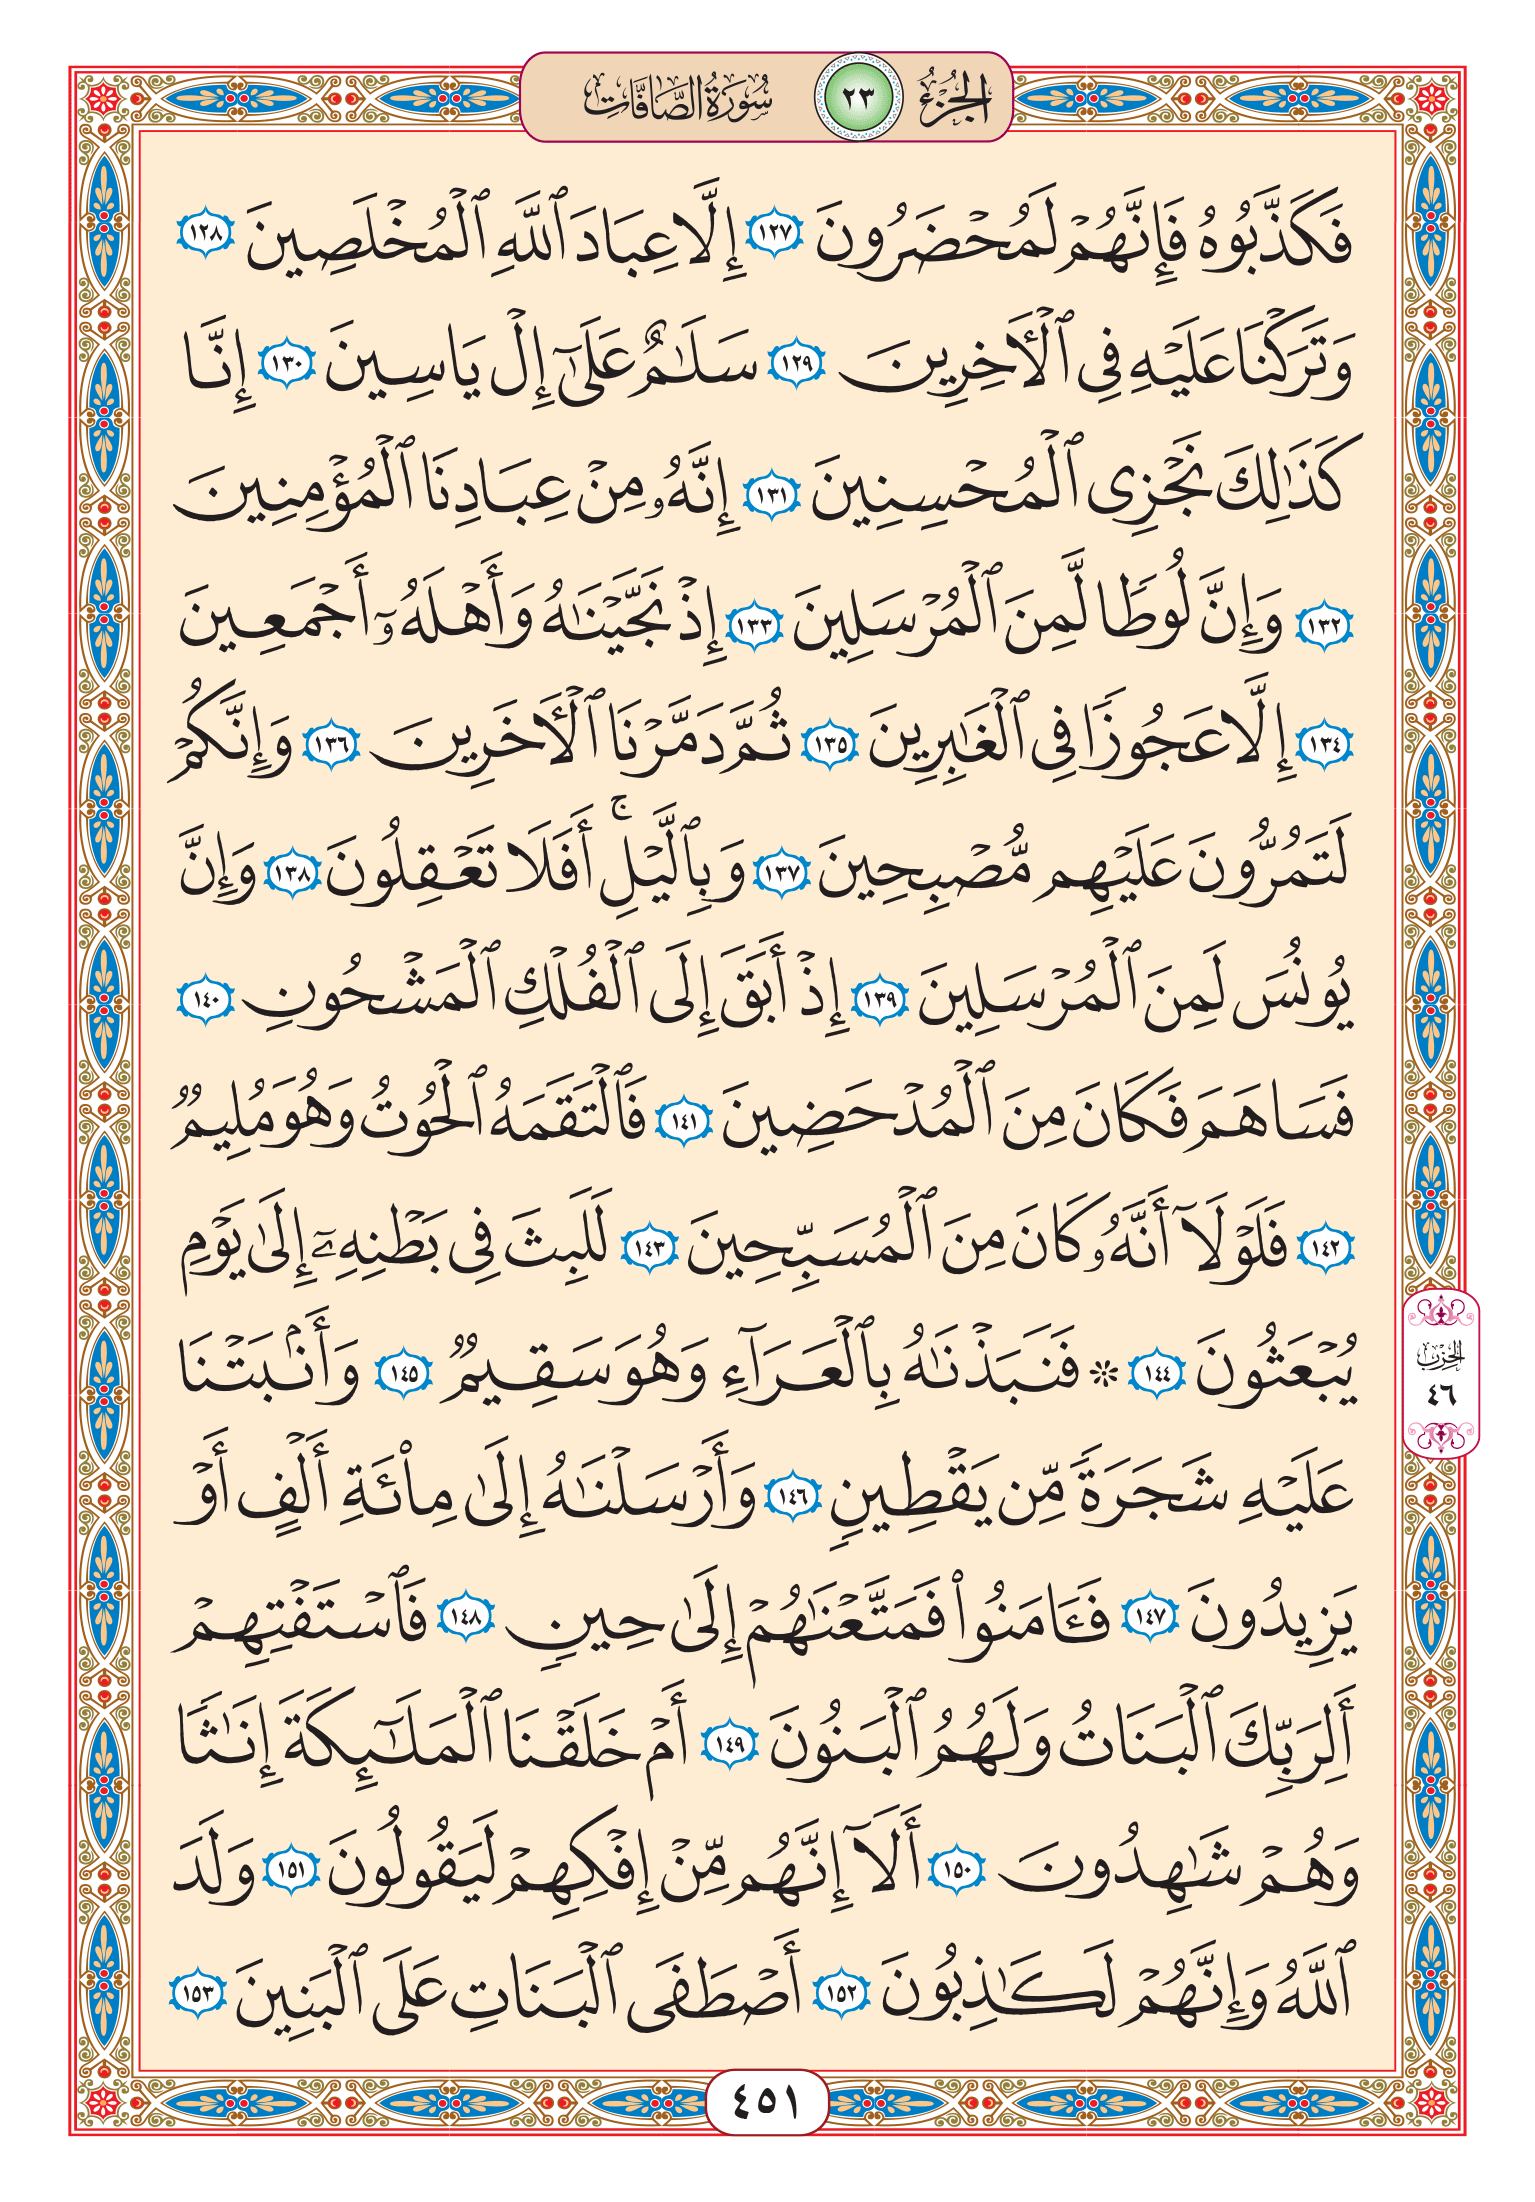 الجزء ٢٣ سورة الصافات
فَكَذَّبُوهُ فَإِنَّهُمْ لَمُحْضَرُونَ ١٢٧ إِلَّا عِبَادَ ٱللَّهِ ٱلْمُخْلَصِينَ ١٢٨
وَتَرَكْنَا عَلَيْهِ فِى ٱلْأَخِرِينَ ١٢٩ سَلَٰمٌ عَلَىٰٓ إِلْ يَاسِينَ ١٣٠ إِنَّا
كَذَٰلِكَ نَجْزِى ٱلْمُحْسِنِينَ ١٣١ إِنَّهُۥ مِنْ عِبَادِنَا ٱلْمُؤْمِنِينَ
١٣٢ وَإِنَّ لُوطًا لَّمِنَ ٱلْمُرْسَلِينَ ١٣٣ إِذْ نَجَّيْنَٰهُ وَأَهْلَهُۥٓ أَجْمَعِينَ
١٣٤ إِلَّا عَجُوزًا فِى ٱلْغَٰبِرِينَ ١٣٥ ثُمَّ دَمَّرْنَا ٱلْأَخَرِينَ ١٣٦ وَإِنَّكُمْ
لَتَمُرُّونَ عَلَيْهِم مُّصْبِحِينَ ١٣٧ وَبِٱلَّيْلِ ۚ أَفَلَا تَعْقِلُونَ ١٣٨ وَإِنَّ
يُونُسَ لَمِنَ ٱلْمُرْسَلِينَ ١٣٩ إِذْ أَبَقَ إِلَى ٱلْفُلْكِ ٱلْمَشْحُونِ ١٤٠
فَسَاهَمَ فَكَانَ مِنَ ٱلْمُدْحَضِينَ ١٤١ فَٱلْتَقَمَهُ ٱلْحُوتُ وَهُوَ مُلِيمٌ
١٤٢ فَلَوْلَآ أَنَّهُۥ كَانَ مِنَ ٱلْمُسَبِّحِينَ ١٤٣ لَلَبِثَ فِى بَطْنِهِۦٓ إِلَىٰ يَوْمِ
يُبْعَثُونَ ١٤٤ ۞ فَنَبَذْنَٰهُ بِٱلْعَرَآءِ وَهُوَ سَقِيمٌ ١٤٥ وَأَنۢبَتْنَا
عَلَيْهِ شَجَرَةً مِّن يَقْطِينٍ ١٤٦ وَأَرْسَلْنَٰهُ إِلَىٰ مِا۟ئَةِ أَلْفٍ أَوْ
يَزِيدُونَ ١٤٧ فَـَٔامَنُوا۟ فَمَتَّعْنَٰهُمْ إِلَىٰ حِينٍ ١٤٨ فَٱسْتَفْتِهِمْ
أَلِرَبِّكَ ٱلْبَنَاتُ وَلَهُمُ ٱلْبَنُونَ ١٤٩ أَمْ خَلَقْنَا ٱلْمَلَٰٓئِكَةَ إِنَٰثًا
وَهُمْ شَٰهِدُونَ ١٥٠ أَلَآ إِنَّهُم مِّنْ إِفْكِهِمْ لَيَقُولُونَ ١٥١ وَلَدَ
ٱللَّهُ وَإِنَّهُمْ لَكَٰذِبُونَ ١٥٢ أَصْطَفَى ٱلْبَنَاتِ عَلَى ٱلْبَنِينَ ١٥٣
الحزب
٤٦
٤٥١